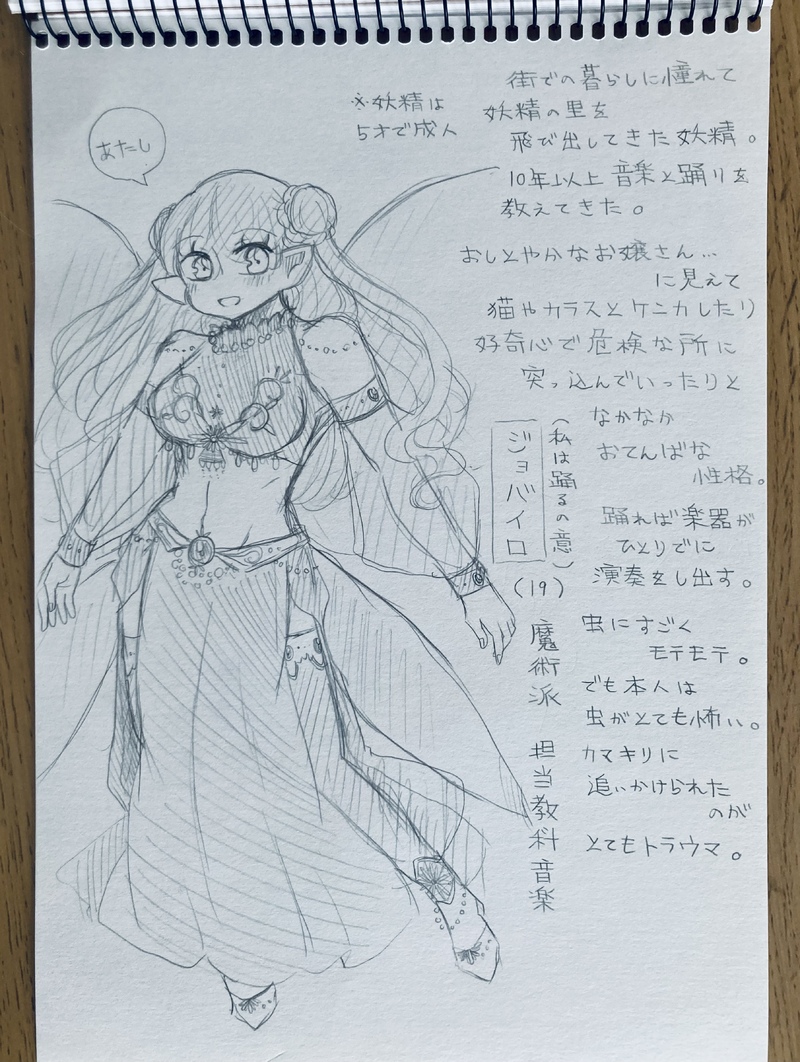 あたし
※妖精は
5才で成人
街での暮らしに憧れて
妖精の里を
飛び出してきた妖精。
10年以上音楽と踊りを
教えてきた。
おしとやかなお嬢さん…
に見えて
猫やカラスとケンカしたり
好奇心で危険な所に
突っ込んでいったりと
なかなか
おてんばな
性格。
(私は踊るの意)
ジョバイロ
(19)
魔術派 担当教科音楽
踊れば楽器が
ひとりでに
演奏をし出す。
虫にすごく
モテモテ。
でも本人は
虫がとても怖い。
カマキリに
追いかけられた
のが
とてもトラウマ。